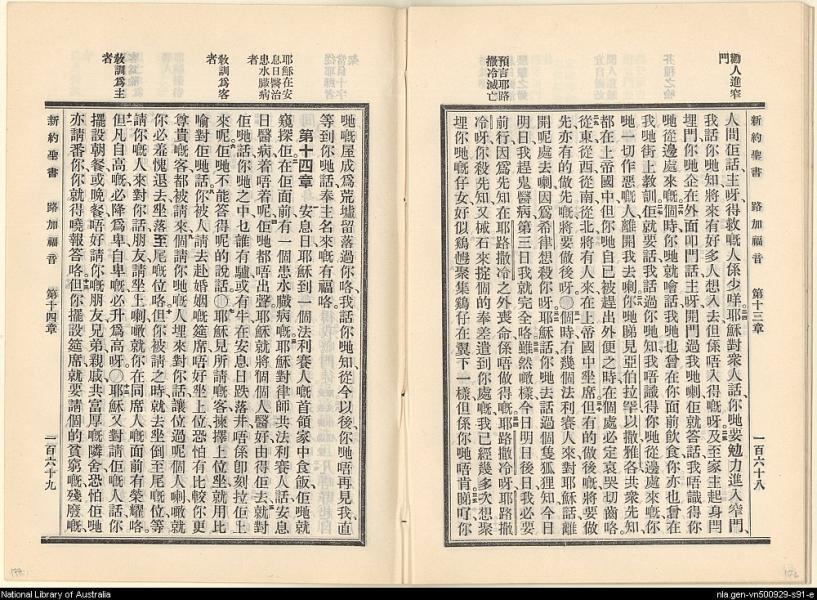 勸人進窄門
預言耶路撒冷滅亡
新約聖書 路加福音 第十三章 一百六十八
人問佢話主呀得救嘅人係少咩耶穌對衆人話你哋要勉力進入窄門
我話你哋知將來有好多人想入去但係唔入得嘅呀及至家主起身閂
埋門你哋企在外面叩門話主呀開門過我哋喇佢就答話我唔識得你
哋從邊處來嘅個時你哋就會話我哋也曾在你面前飲食你亦也曾在
我哋街上教訓佢就要話我話過你哋知我唔識得你哋從邊處來嘅你
哋一切作惡嘅人離開我去喇你哋睇見亞伯拉罕以撒雅各共衆先知
都在上帝國中但你哋自己被趕出外便之時在個處必定哀哭切齒咯
從東從西從南從北將有人來在上帝國中坐席但有的做後嘅將要做
先亦有的做先嘅將要做後呀○個時有幾個法利賽人來對耶穌話離
開呢處去喇因為希律想殺你呀耶穌話你哋去話過個隻狐狸知今日
明日我趕鬼醫病第三日我就完全咯雖然噉樣今日明日後日我必要
前行因爲先知在耶路撒冷之外喪命係唔做得嘅耶路撒冷呀耶路撒
冷呀你殺先知又掟石來掟個的奉差遣到你處嘅我已經幾多次想聚
埋你哋嘅仔女好似鷄𡛕聚集鷄仔在翼下一樣但係你哋唔肯睇吓你
耶穌在安息日醫治患水臌病者
教訓爲客者
教訓爲主者
哋嘅屋成爲荒墟留落過你咯我話你哋知從今以後你哋唔再見我直
等到你哋話奉主名來嘅有福咯
第十四章 安息日耶穌到一個法利賽人嘅首領家中食飯佢哋就
窺探佢在佢面前有一個患水臌病嘅耶穌對律師共法利賽人話安息
日醫病着唔着呢佢哋都唔出聲耶穌就將個個人醫好由得佢去就對
佢哋話你哋之中乜誰有驢或有牛在安息日跌落井唔係卽刻拉佢上
來呢佢哋不能答得呢的說話○耶穌見所請嘅客揀擇上位坐就用比
喻對佢哋話你被人請去赴婚姻嘅筵席唔好坐上位恐怕有比較你更
尊貴嘅客都被請來個請你哋嘅人埋來對你話讓位過呢個人喇噉就
你必羞愧退去坐落至尾嘅位咯但你被請之時就去坐倒至尾嘅位等
請你嘅人來對你話朋友請坐上喇噉就你在同席人嘅面前有榮耀咯
但凡自高嘅必降爲卑自卑嘅必升爲高呀○耶穌又對請佢嘅人話你
擺設朝餐或晚餐唔好請你嘅朋友兄弟親戚共富厚嘅隣舍恐怕佢哋
亦請番你你就得嘵報答咯但你擺設筵席就要請個的貧窮嘅殘廢嘅
新約聖書 路加福音 第十四章 一百六十九
National Library of Australia
nla.gen-vn500929-s91-e